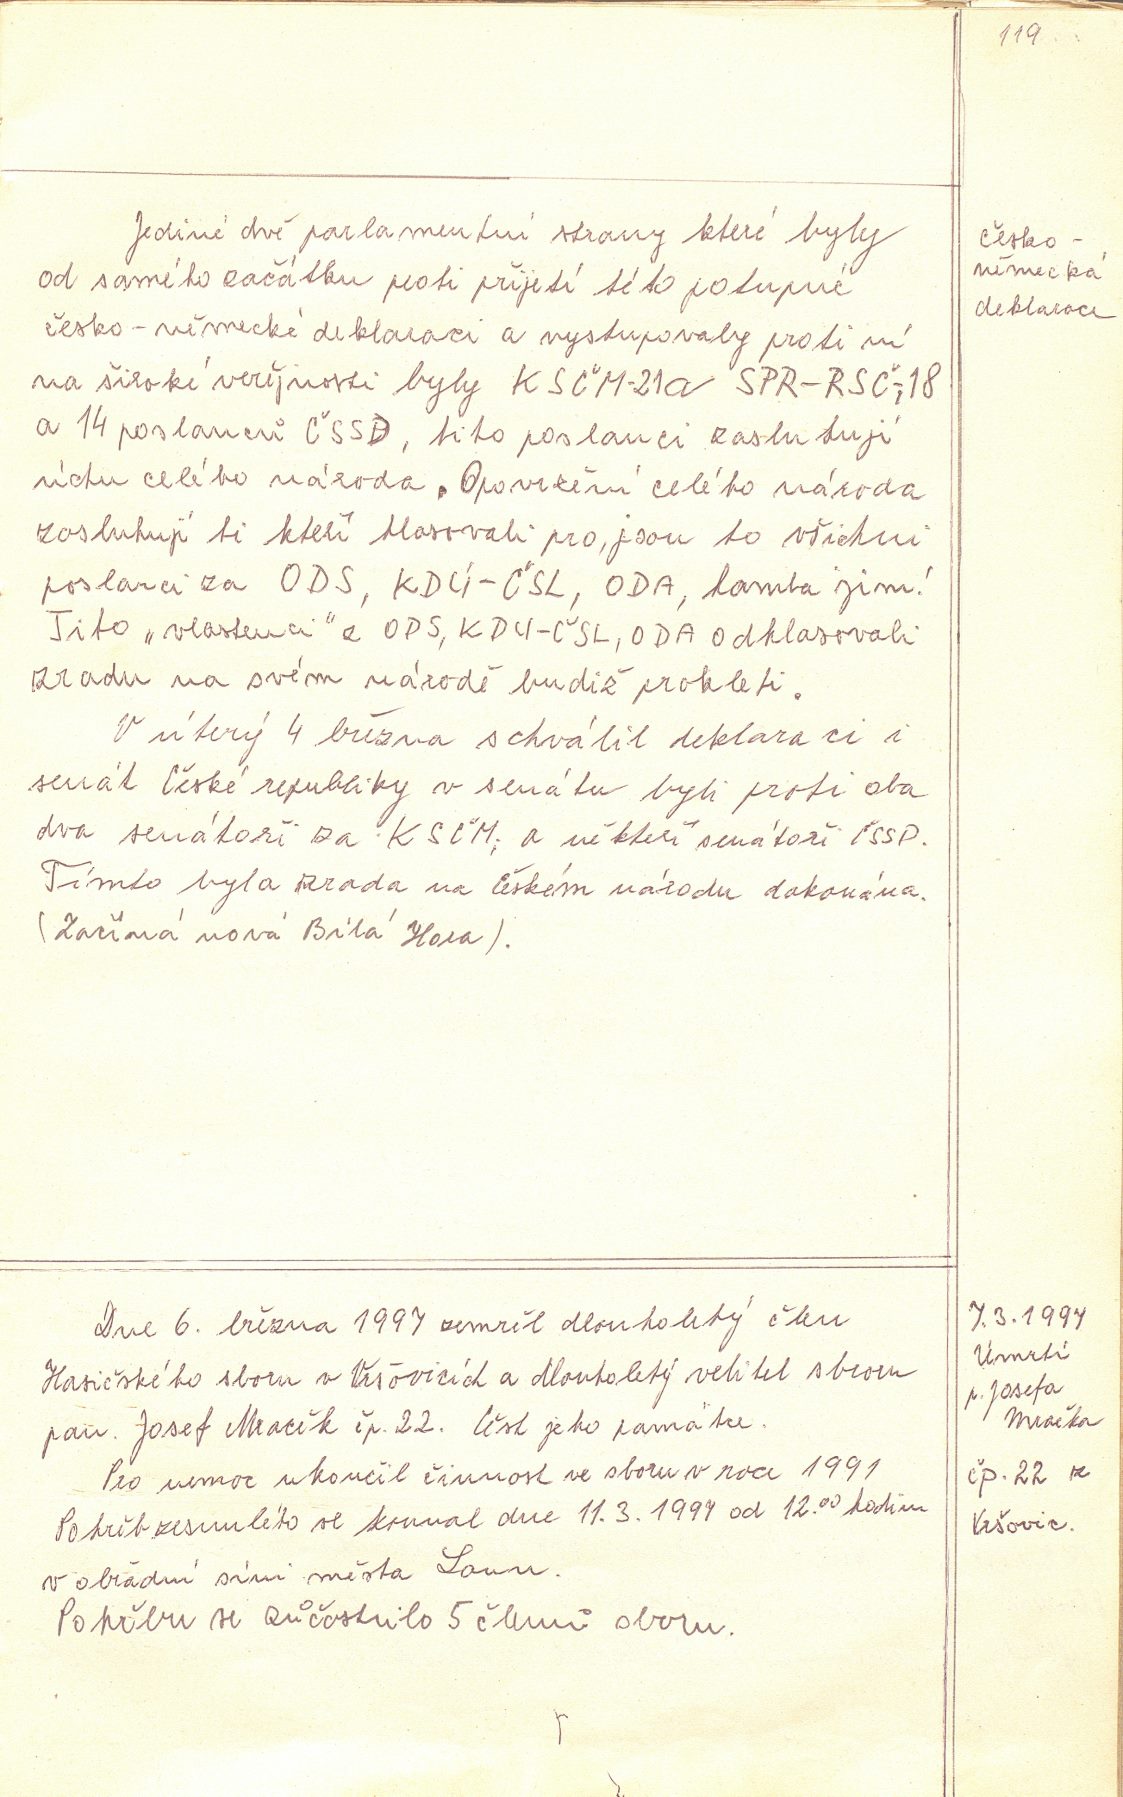 119
Jediné dvě parlamentní strany které byly
od samého začátku proti přijetí této potupné
česko-německé deklaraci a vystupovaly proti ní
na široké veřejnosti byly KSČM-21 a SPR-RSČ-18
a 14 poslanců ČSSD, tito poslanci zasluhují
úctu celého národa. Opovržení celého národa
zasluhují ti kteří hlasovali pro, jsou to všichni
poslanci za ODS, KDU-ČSL, ODA, hamba jim!
Tito „vlastenci" z ODS, KDU-ČSL, ODA odhlasovali
zradu na svém národě budiž prokleti.
V úterý 4 března schválil deklaraci i
senát České republiky v senátu byli proti oba
dva senátoři za KSČM, a někteří senátoři ČSSD.
Tímto byla zrada na českém národu dokonána.
(Začíná nová Bílá Hora).
česko-
německá
deklarace
Dne 6. března 1997 zemřel dlouholetý člen
Hasičského sboru v Vršovicích a dlouholetý velitel sboru
pan. Josef Mraček čp. 22. Čest jeho památce.
Pro nemoc ukončil činnost ve sboru v roce 1991
Pohřeb zesnulého se konal dne 11. 3. 1997 od 12.00 hodin
v obřadní síni města Loun.
Pohřbu se zůčastnilo 5 členů sboru.
7.3.1997
Úmrtí
p. Josefa
Mračka
čp. 22 z
Vršovic.